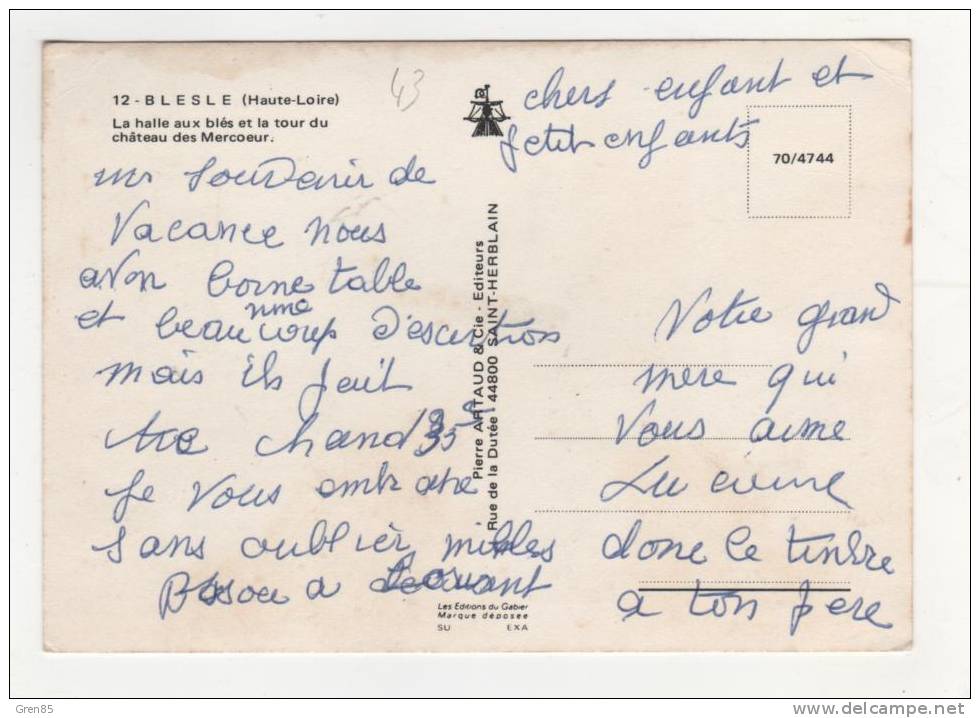 12 - BLESLE (Haute-Loire)
La halle aux blés et la tour du
château des Mercoeur.
43
chers enfant et
petit enfants
70/4744
un Souvenir de
Vacance nous
avon bonne table
et beaucoup d'escurtions
mais ils fait
chaud 35
Je vous embrasse
sans oublier milles
Bisou a
Pierre ARTAUD & Cie - Editeurs
Rue de la Dutée 44800 SAINT-HERBLAIN
Les Editions du Gabier
Marque déposée
SU EXA
Votre grand
mere qui
Vous aime
Lucienne
donc le timbre
a ton pere
Gren85
www.delcampe.net